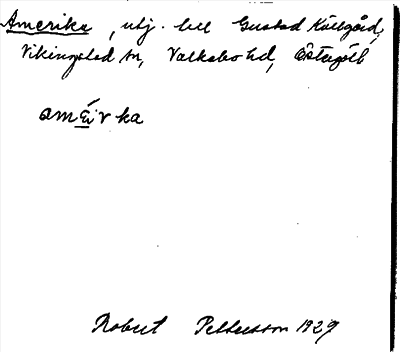 Amerika, utj. till Gustad Källgård,
Vikingstad sn, Valkebo hd, Östergötl
Robert Pettersson 1929